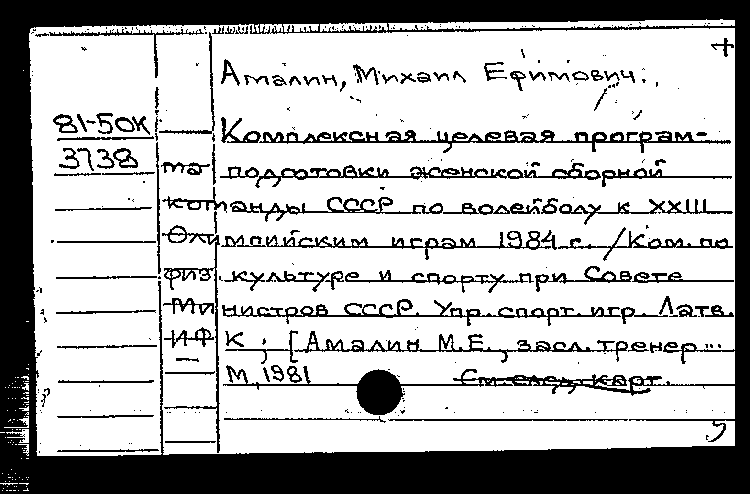 +
Амалин, Михаил Ефимович.
81-50К
3738
Комплексная целевая програм-
ма подготовки женской сборной
команды СССР по волейболу к XXIII
Олимпийским играм 1984 г. / Ком. по
физ. культуре и спорту при Совете
Министров СССР. Упр. спорт. игр. Латв.
ИФК ; [Амалин М.Е., засл. тренер ...
М, 1981 См. след. карт.